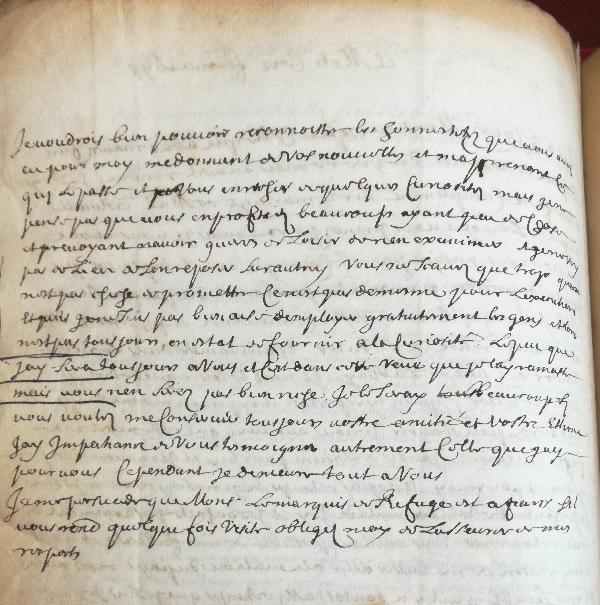 Je voudrois bien pouvoir reconnoistre les honnestetez que vous avez
eu pour moy me donnant de vos nouvelles et m'apprenant ce
qui se passe et vous enrichir de quelques Curiositez mais je ne
pense pas que vous en profitiez beaucoup ayant peu de Chose
et prevoyant n'avoir guere de Loisir de rien examiner et je ne voy
pas de Lieu de s'en reposer sur autruy Vous ne scavez que trop que ce
n'est pas chose de promettre Ce n'est pas de mesme pour L'execution
Et puis je ne suis pas bien aise d'employer gratuitement les gens et on
n'est pas tousjours en estat de fournir a la Curiosité. Le peu que
j'ay sera tousjours a Vous et C'est dans cette veue que je l'ay ramassé
mais vous n'en serez pas bien riche Je le seray beaucoup si
vous voulez me Conserver tousjours vostre amitié et vostre Estime
J'ay Impatiance de Vous temoigner autrement Celle que j'ay
pour vous Cependant je demeure tout a Vous
Je me persuade que Mons. Le marquis de Refuge est a Paris s'il
vous rend quelque fois visite obligez moy de L'asseurer de mes
respects